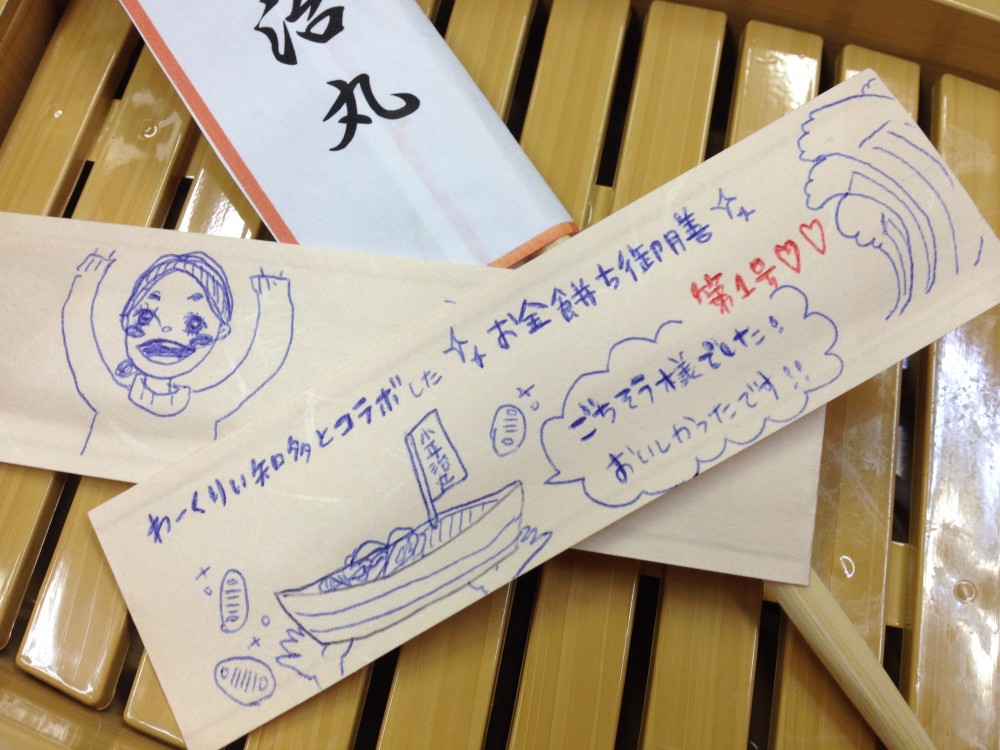 治丸
わーくりぃ知多とコラボした
お金餅ち御膳
第1号♡♡
ごちそう様でした!
おいしかったです!!
小平治丸